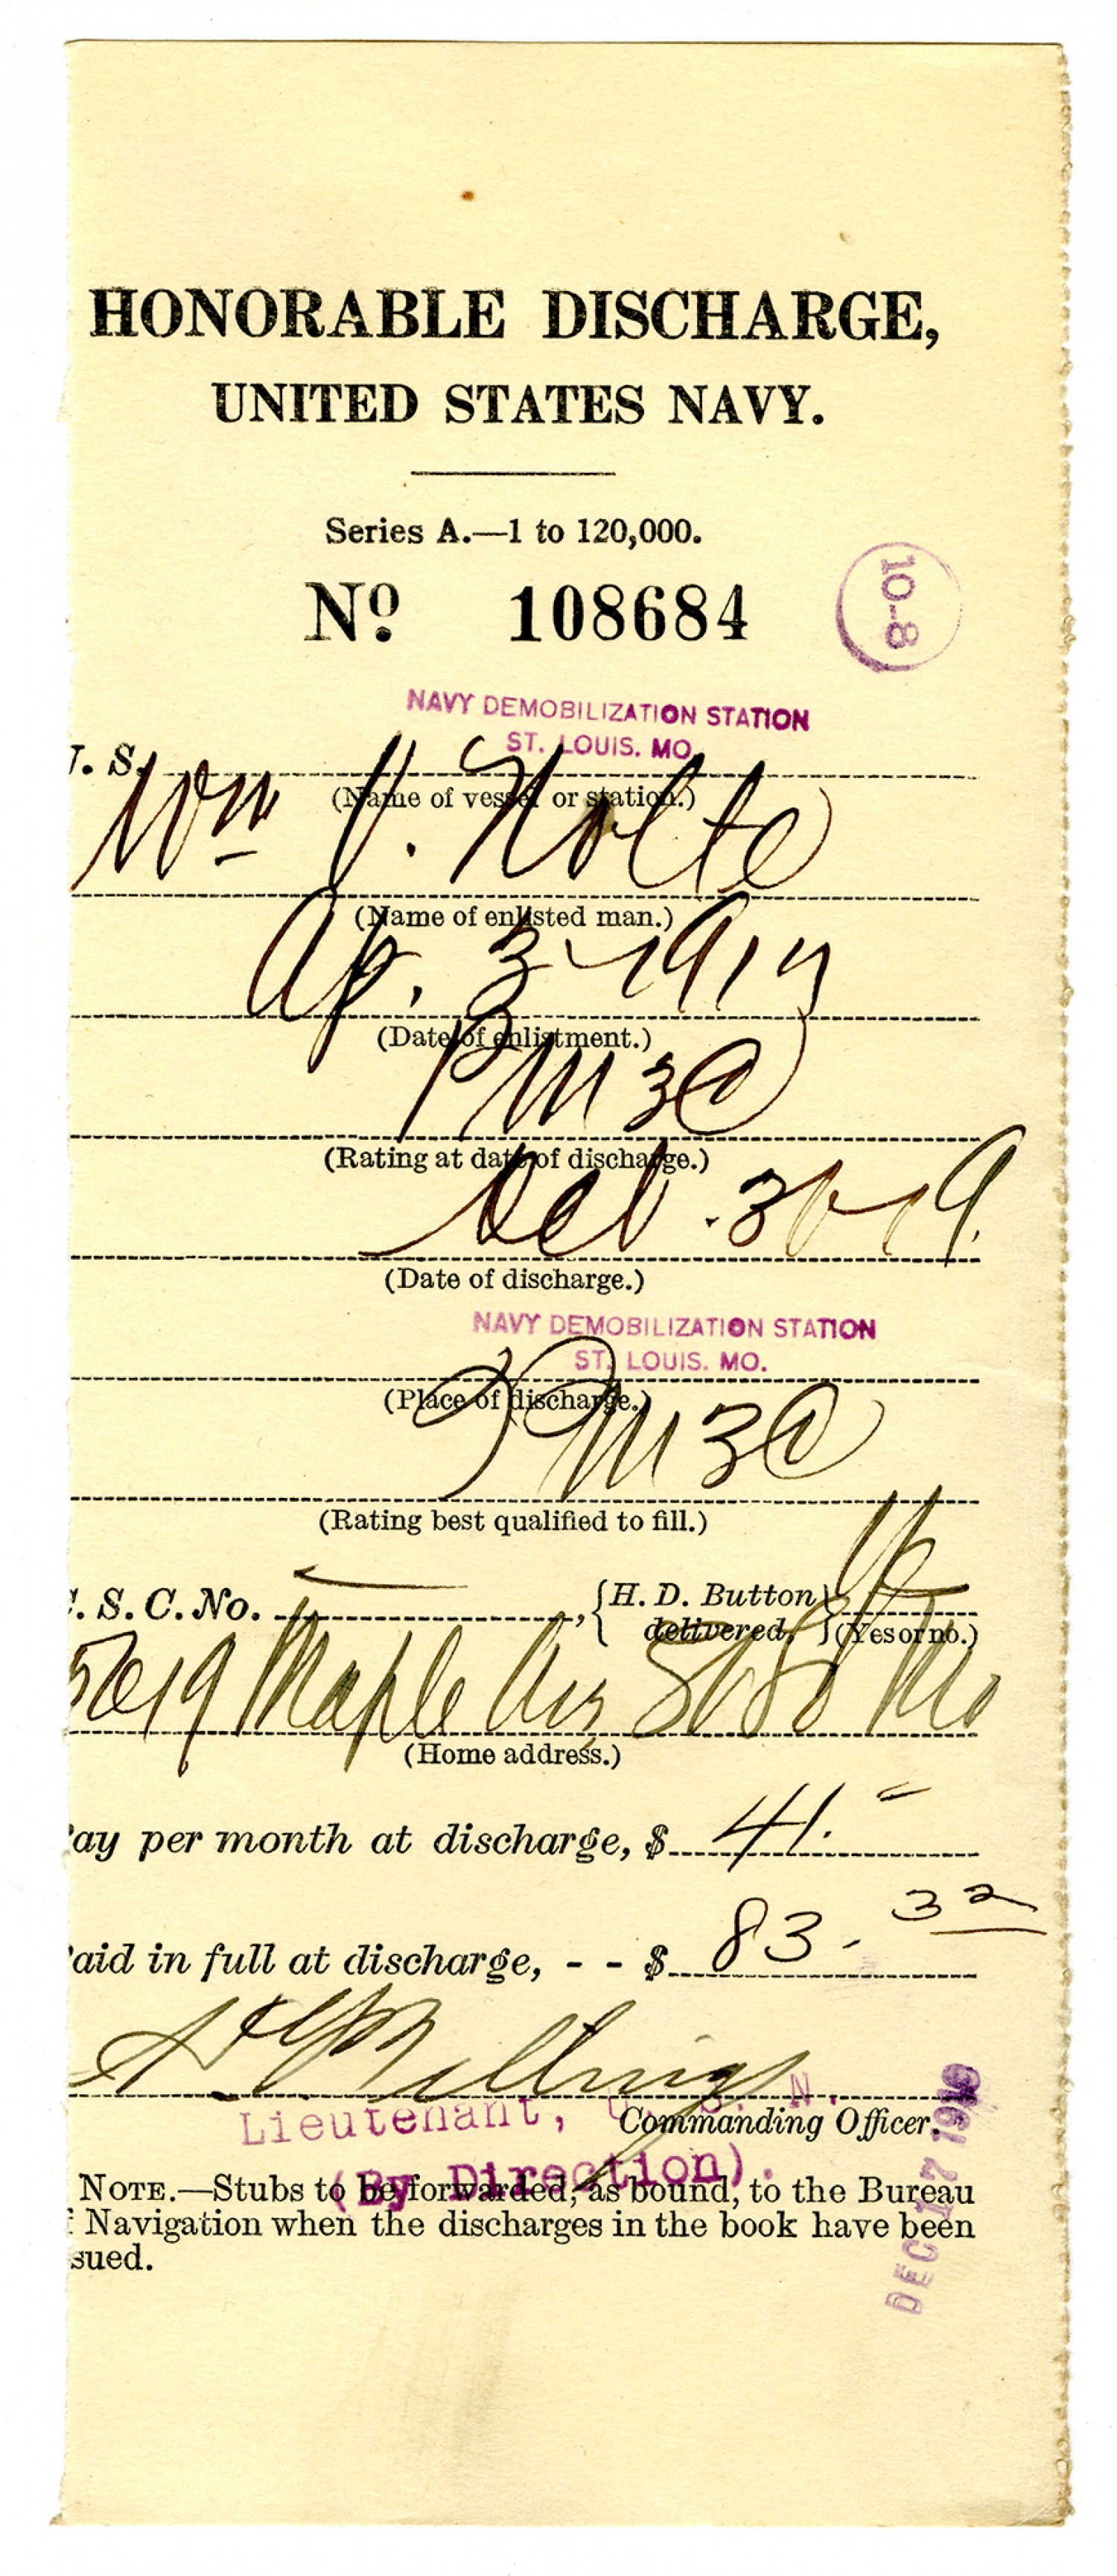 HONORABLE DISCHARGE,
UNITED STATES NAVY.
Series A.—1 to 120,000.
Nº 108684
10-8
NAVY DEMOBILIZATION STATION
ST. LOUIS. MO.
. S.
(Name of vessel or station.)
Wm V. Nolte
(Name of enlisted man.)
Ap. 3-1917
(Date of enlistment.)
PM3C
(Rating at date of discharge.)
19.
(Date of discharge.)
NAVY DEMOBILIZATION STATION
ST. LOUIS. MO.
(Place of discharge.)
PM3C
(Rating best qualified to fill.)
. S. C. No. , {H. D. Button delivered,} (Yes or no.)
5619 Maple Ave St Mo
(Home address.)
ay per month at discharge, $ 41.=
aid in full at discharge, - - $ 83.32
Billings
Lieutenant, U. S. N.
Commanding Officer.
(By Direction).
DEC 17 1919
NOTE.—Stubs to be forwarded, as bound, to the Bureau
f Navigation when the discharges in the book have been
sued.